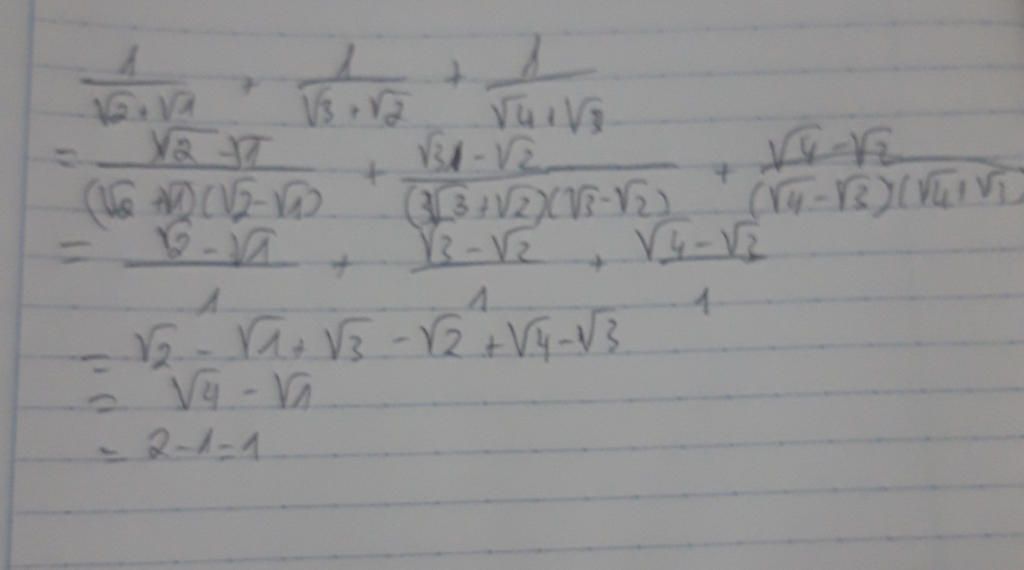 1/(√2 + √1) + 1/(√3 + √2) + 1/(√4 + √3)
= (√2 - √1)/((√2 + √1)(√2 - √1)) + (√3 - √2)/((√3 + √2)(√3 - √2)) + (√4 - √3)/((√4 - √3)(√4 + √3))
= (√2 - √1)/1 + (√3 - √2)/1 + (√4 - √3)/1
= √2 - √1 + √3 - √2 + √4 - √3
= √4 - √1
= 2 - 1 = 1